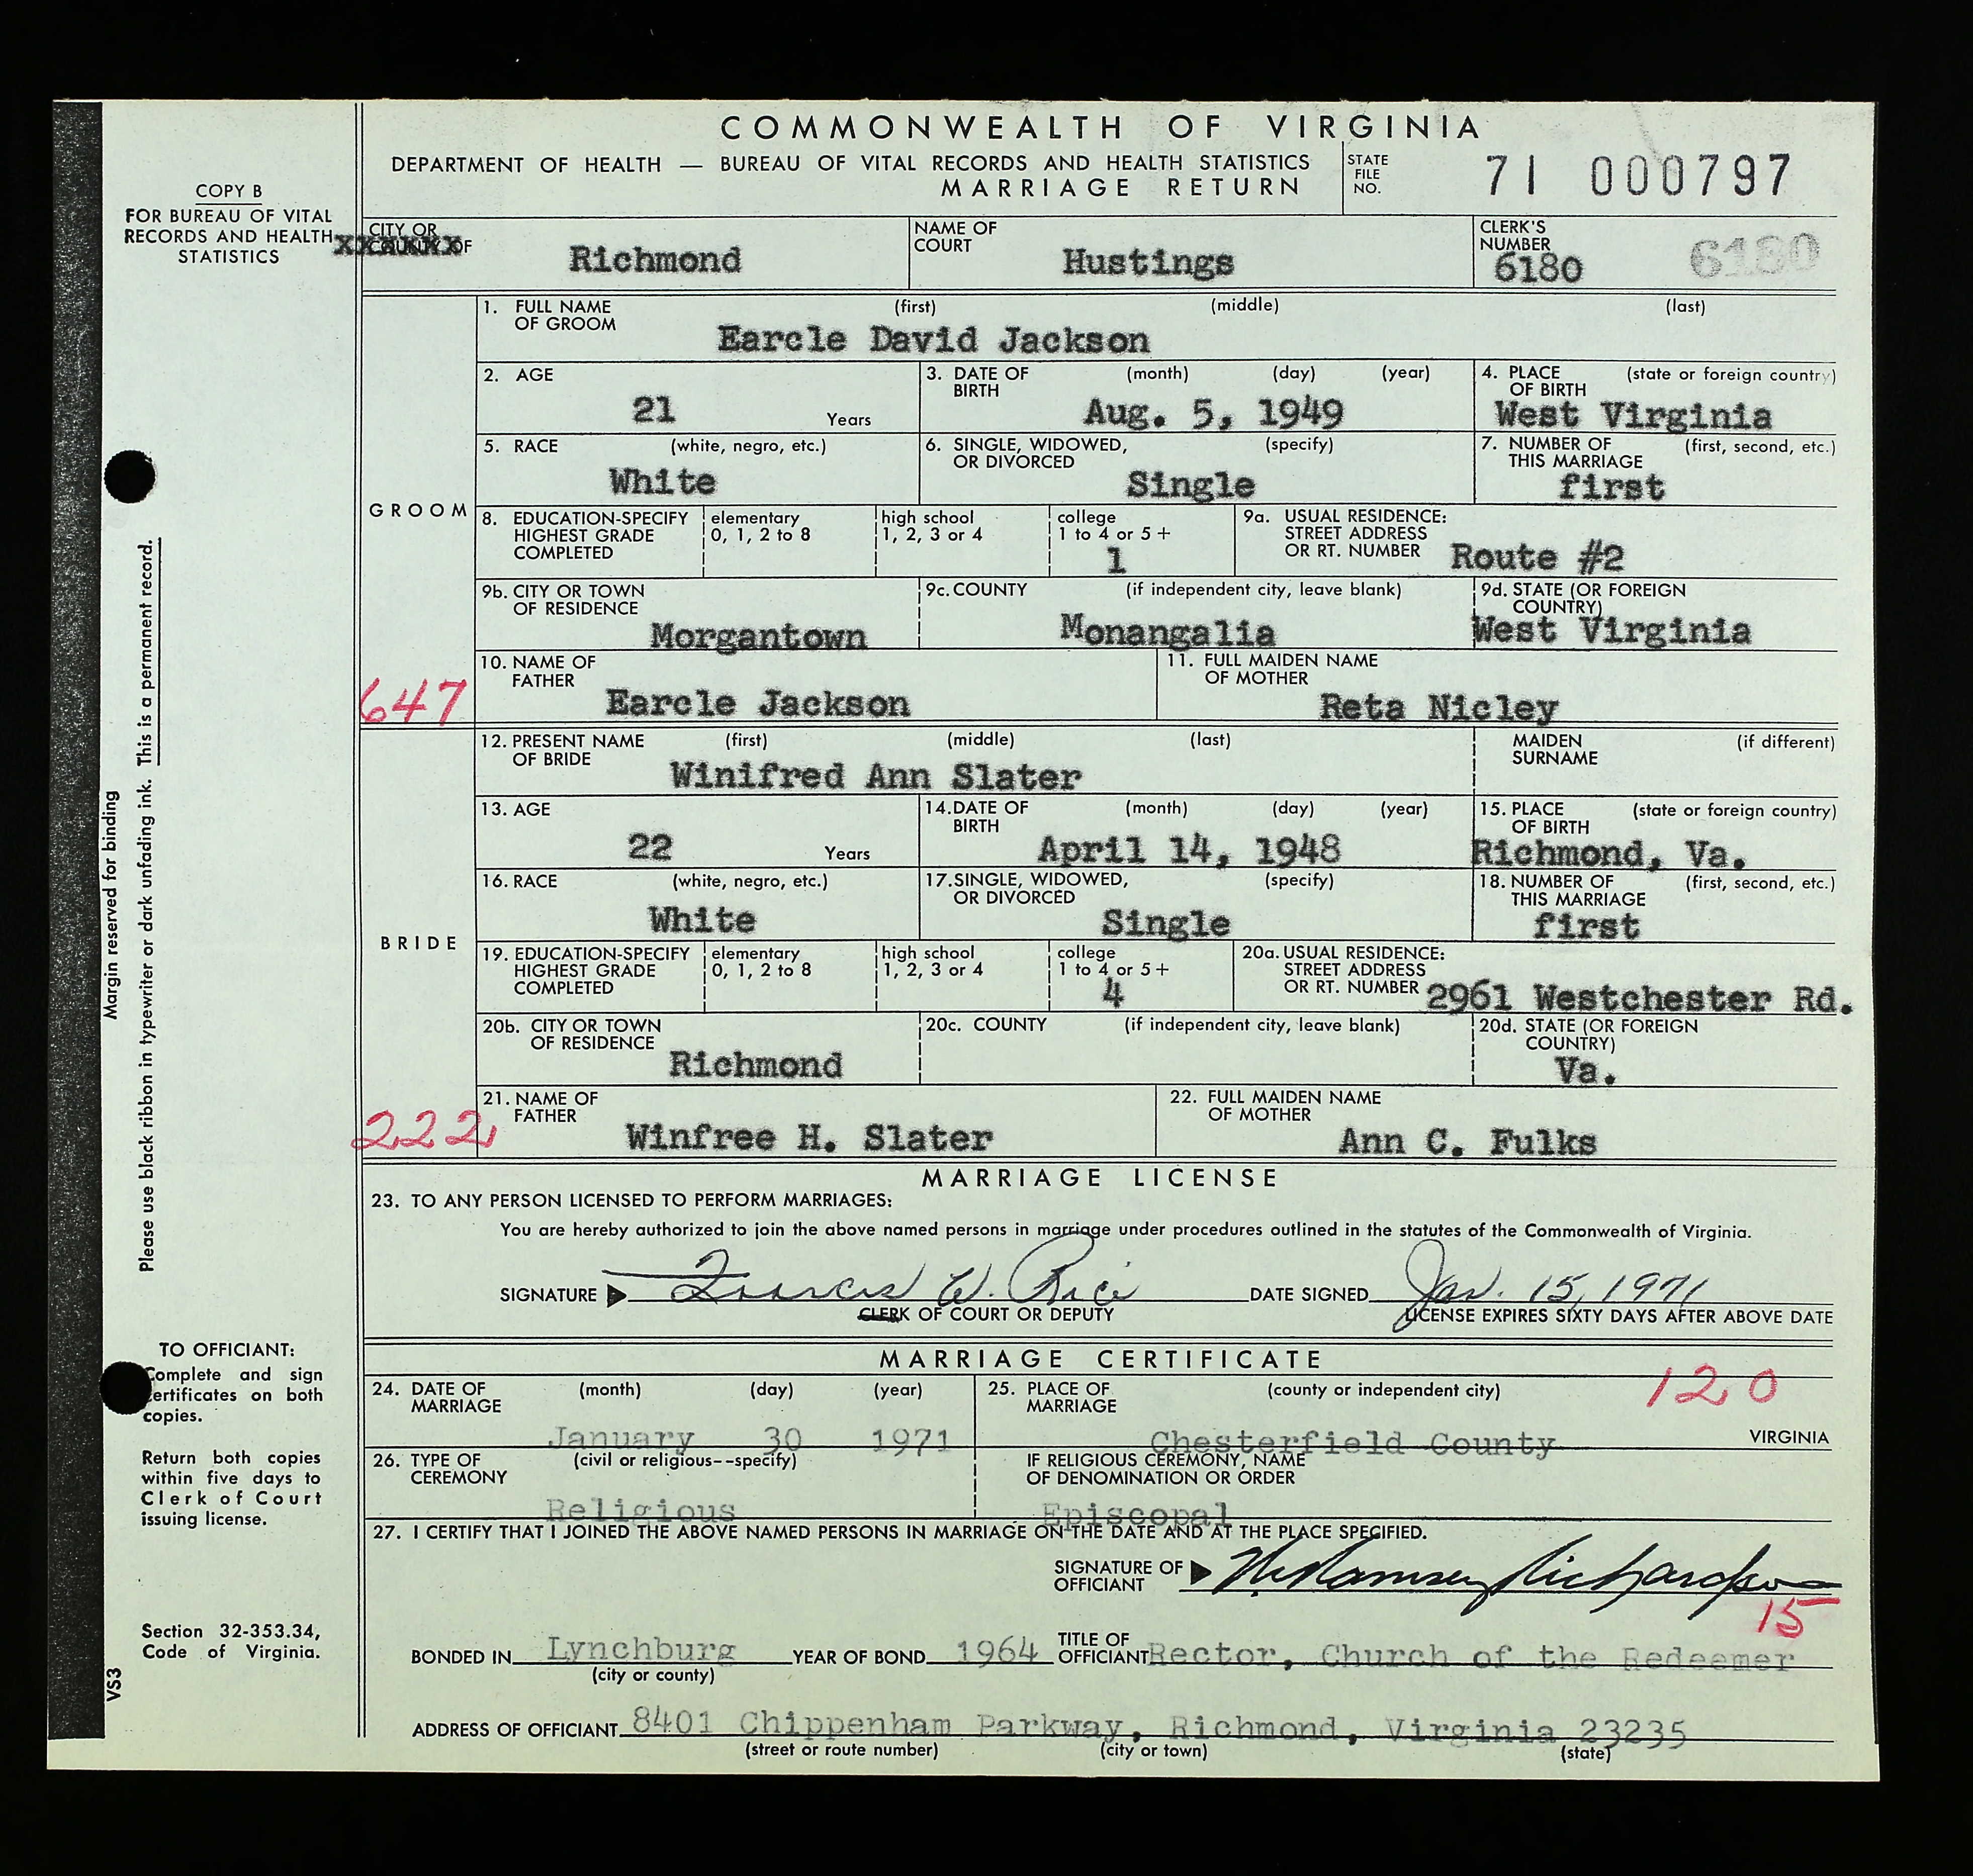 COMMONWEALTH OF VIRGINIA
DEPARTMENT OF HEALTH — BUREAU OF VITAL RECORDS AND HEALTH STATISTICS
MARRIAGE RETURN
STATE FILE NO. 71 000797
COPY B
FOR BUREAU OF VITAL
RECORDS AND HEALTH
STATISTICS
CITY OR COUNTY OF Richmond
NAME OF COURT Hustings
CLERK'S NUMBER 6180 6180
GROOM
1. FULL NAME OF GROOM (first) (middle) (last)
Earcle David Jackson
2. AGE 21 Years
3. DATE OF BIRTH (month) (day) (year) Aug. 5, 1949
4. PLACE OF BIRTH (state or foreign country) West Virginia
5. RACE (white, negro, etc.) White
6. SINGLE, WIDOWED, OR DIVORCED (specify) Single
7. NUMBER OF THIS MARRIAGE (first, second, etc.) first
8. EDUCATION-SPECIFY HIGHEST GRADE COMPLETED
elementary 0, 1, 2 to 8
high school 1, 2, 3 or 4
college 1 to 4 or 5+ 1
9a. USUAL RESIDENCE: STREET ADDRESS OR RT. NUMBER Route #2
9b. CITY OR TOWN OF RESIDENCE Morgantown
9c. COUNTY (if independent city, leave blank) Monangalia
9d. STATE (OR FOREIGN COUNTRY) West Virginia
10. NAME OF FATHER Earcle Jackson
11. FULL MAIDEN NAME OF MOTHER Reta Nicley
647
BRIDE
12. PRESENT NAME OF BRIDE (first) (middle) (last) Winifred Ann Slater
MAIDEN SURNAME (if different)
13. AGE 22 Years
14. DATE OF BIRTH (month) (day) (year) April 14, 1948
15. PLACE OF BIRTH (state or foreign country) Richmond, Va.
16. RACE (white, negro, etc.) White
17. SINGLE, WIDOWED, OR DIVORCED (specify) Single
18. NUMBER OF THIS MARRIAGE (first, second, etc.) first
19. EDUCATION-SPECIFY HIGHEST GRADE COMPLETED
elementary 0, 1, 2 to 8
high school 1, 2, 3 or 4
college 1 to 4 or 5+ 4
20a. USUAL RESIDENCE: STREET ADDRESS OR RT. NUMBER 2961 Westchester Rd.
20b. CITY OR TOWN OF RESIDENCE Richmond
20c. COUNTY (if independent city, leave blank)
20d. STATE (OR FOREIGN COUNTRY) Va.
21. NAME OF FATHER Winfree H. Slater
22. FULL MAIDEN NAME OF MOTHER Ann C. Fulks
222
MARRIAGE LICENSE
23. TO ANY PERSON LICENSED TO PERFORM MARRIAGES:
You are hereby authorized to join the above named persons in marriage under procedures outlined in the statutes of the Commonwealth of Virginia.
SIGNATURE Frances W. Rice DATE SIGNED Jan. 15, 1971
CLERK OF COURT OR DEPUTY LICENSE EXPIRES SIXTY DAYS AFTER ABOVE DATE
MARRIAGE CERTIFICATE
120
24. DATE OF MARRIAGE (month) (day) (year) January 30 1971
25. PLACE OF MARRIAGE (county or independent city) Chesterfield County VIRGINIA
26. TYPE OF CEREMONY (civil or religious--specify) Religious
IF RELIGIOUS CEREMONY, NAME OF DENOMINATION OR ORDER Episcopal
27. I CERTIFY THAT I JOINED THE ABOVE NAMED PERSONS IN MARRIAGE ON THE DATE AND AT THE PLACE SPECIFIED.
SIGNATURE OF OFFICIANT Ramsey Richardson
15
BONDED IN Lynchburg YEAR OF BOND 1964 TITLE OF OFFICIANT Rector, Church of the Redeemer
(city or county)
ADDRESS OF OFFICIANT 8401 Chippenham Parkway, Richmond, Virginia 23235
(street or route number) (city or town) (state)
Margin reserved for binding
Please use black ribbon in typewriter or dark unfading ink. This is a permanent record.
TO OFFICIANT:
Complete and sign
certificates on both
copies.
Return both copies
within five days to
Clerk of Court
issuing license.
Section 32-353.34,
Code of Virginia.
VS3